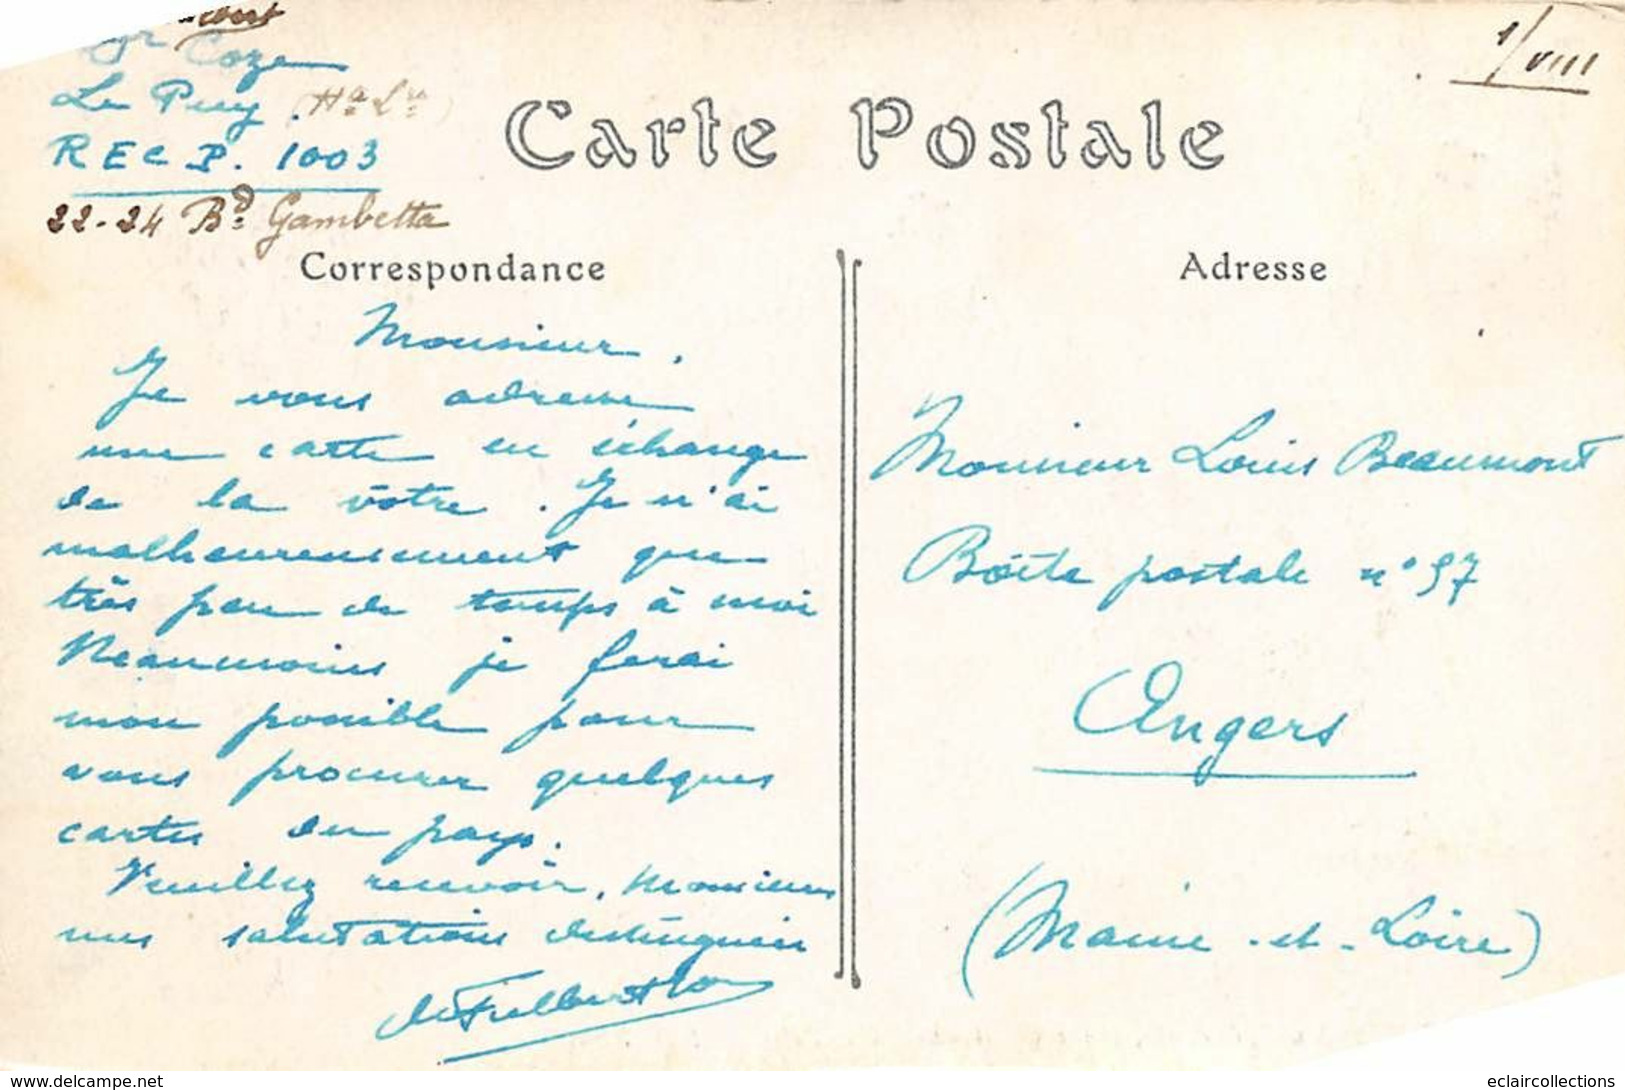 Coze
Le Puy (Hte Lre)
R E C P. 1003
22-24 Bd Gambetta
1/VIII
Carte Postale
Correspondance
Adresse
Monsieur,
Je vous adresse
une carte en échange
de la vôtre. Je n'ai
malheureusement que
très peu de temps à moi
Neanmoins je ferai
mon possible pour
vous procurer quelques
cartes du pays.
Veuillez recevoir, Monsieur
mes salutations distinguées
Monsieur Louis Beaumont
Boîte postale n° 97
Angers
(Maine-et-Loire)
www.delcampe.net
eclaircollections